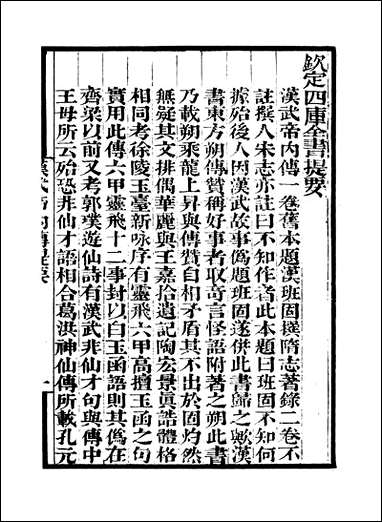 欽定四庫全書提要
漢武帝內傳一卷舊本題漢班固撰隋志著錄二卷不
註撰人宋志亦註曰不知作者此本題曰班固不知何
據殆後人因漢武故事偽題班固遂併此書歸之歟漢
書東方朔傳贊稱好事者取奇言怪語附著之朔此書
乃載朔乘龍上昇與傳贊自相矛盾其不出於固灼然
無疑其文排偶華麗與王嘉拾遺記陶宏景真誥體格
相同考徐陵玉臺新咏序有靈飛六甲高擅玉函之句
實用此傳六甲靈飛十二事封以白玉函語則其偽在
齊梁以前又考郭璞遊仙詩有漢武非仙才句與傳中
王母所云殆恐非仙才語相合葛洪神仙傳所載孔元
漢武帝內傳提要
一